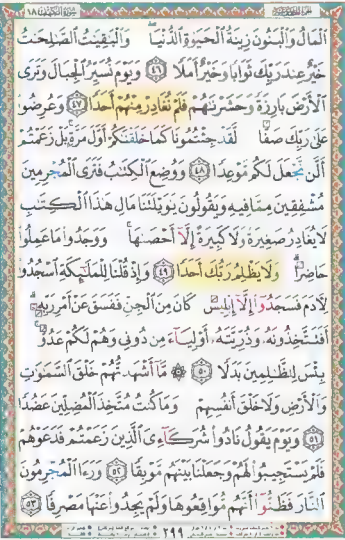 سُورَةُ الكَهْفِ ١٨
ٱلْمَالُ وَٱلْبَنُونَ زِينَةُ ٱلْحَيَوٰةِ ٱلدُّنْيَا ۖ وَٱلْبَٰقِيَٰتُ ٱلصَّٰلِحَٰتُ
خَيْرٌ عِندَ رَبِّكَ ثَوَابًا وَخَيْرٌ أَمَلًا ٤٦ وَيَوْمَ نُسَيِّرُ ٱلْجِبَالَ وَتَرَى
ٱلْأَرْضَ بَارِزَةً وَحَشَرْنَٰهُمْ فَلَمْ نُغَادِرْ مِنْهُمْ أَحَدًا ٤٧ وَعُرِضُوا۟
عَلَىٰ رَبِّكَ صَفًّا لَّقَدْ جِئْتُمُونَا كَمَا خَلَقْنَٰكُمْ أَوَّلَ مَرَّةٍۭ ۚ بَلْ زَعَمْتُمْ
أَلَّن نَّجْعَلَ لَكُم مَّوْعِدًا ٤٨ وَوُضِعَ ٱلْكِتَٰبُ فَتَرَى ٱلْمُجْرِمِينَ
مُشْفِقِينَ مِمَّا فِيهِ وَيَقُولُونَ يَٰوَيْلَتَنَا مَالِ هَٰذَا ٱلْكِتَٰبِ
لَا يُغَادِرُ صَغِيرَةً وَلَا كَبِيرَةً إِلَّآ أَحْصَىٰهَا ۚ وَوَجَدُوا۟ مَا عَمِلُوا۟
حَاضِرًا ۗ وَلَا يَظْلِمُ رَبُّكَ أَحَدًا ٤٩ وَإِذْ قُلْنَا لِلْمَلَٰٓئِكَةِ ٱسْجُدُوا۟
لِءَادَمَ فَسَجَدُوٓا۟ إِلَّآ إِبْلِيسَ كَانَ مِنَ ٱلْجِنِّ فَفَسَقَ عَنْ أَمْرِ رَبِّهِۦٓ ۗ
أَفَتَتَّخِذُونَهُۥ وَذُرِّيَّتَهُۥٓ أَوْلِيَآءَ مِن دُونِى وَهُمْ لَكُمْ عَدُوٌّۢ ۚ
بِئْسَ لِلظَّٰلِمِينَ بَدَلًا ٥٠ ۞ مَّآ أَشْهَدتُّهُمْ خَلْقَ ٱلسَّمَٰوَٰتِ
وَٱلْأَرْضِ وَلَا خَلْقَ أَنفُسِهِمْ وَمَا كُنتُ مُتَّخِذَ ٱلْمُضِلِّينَ عَضُدًا
٥١ وَيَوْمَ يَقُولُ نَادُوا۟ شُرَكَآءِىَ ٱلَّذِينَ زَعَمْتُمْ فَدَعَوْهُمْ
فَلَمْ يَسْتَجِيبُوا۟ لَهُمْ وَجَعَلْنَا بَيْنَهُم مَّوْبِقًا ٥٢ وَرَءَا ٱلْمُجْرِمُونَ
ٱلنَّارَ فَظَنُّوٓا۟ أَنَّهُم مُّوَاقِعُوهَا وَلَمْ يَجِدُوا۟ عَنْهَا مَصْرِفًا ٥٣
٢٩٩